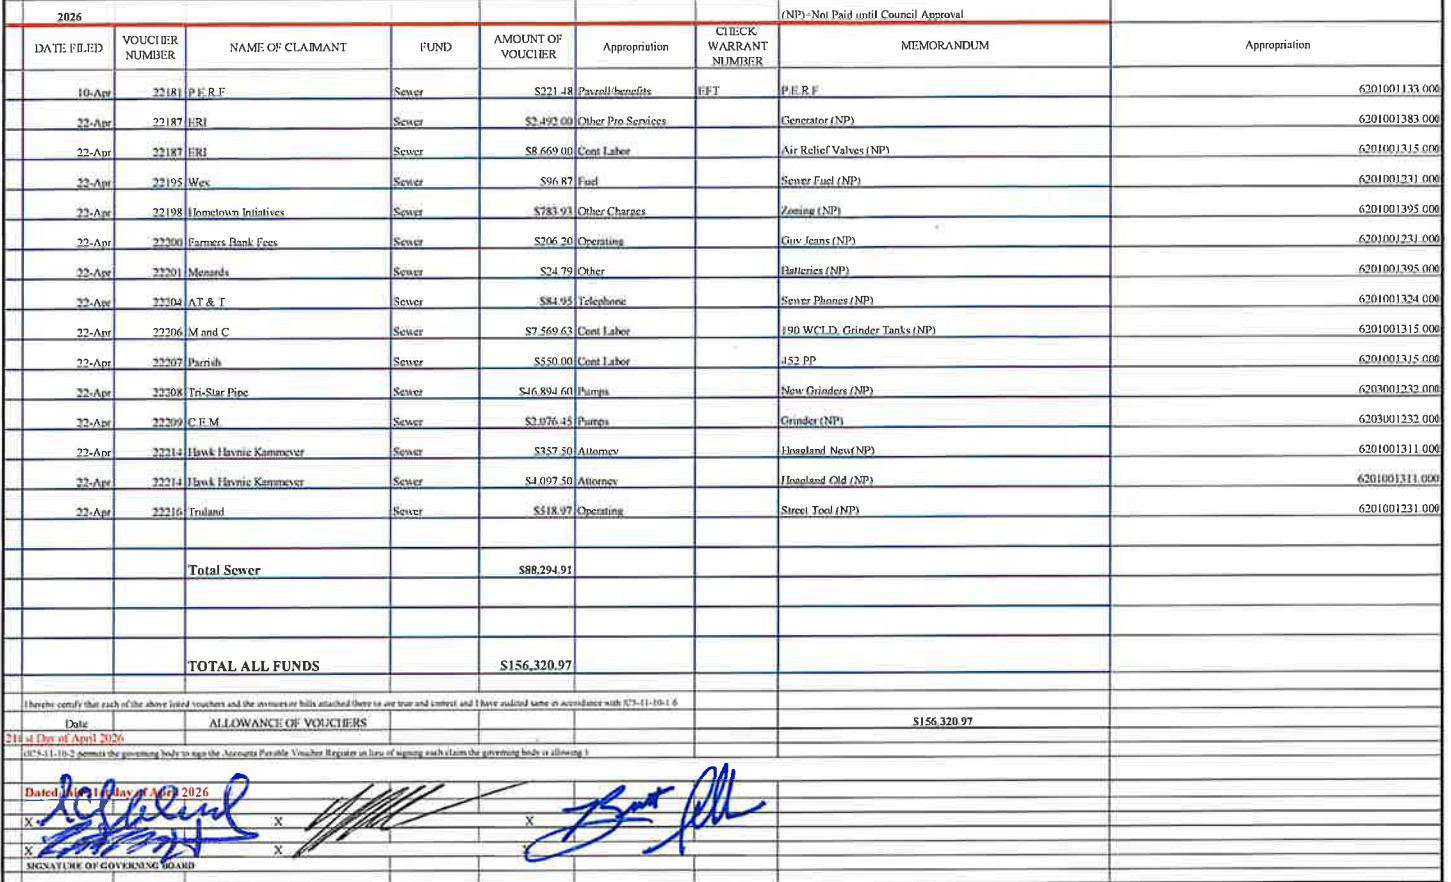 2026 (NP)=Not Paid until Council Approval
DATE FILED VOUCHER NUMBER NAME OF CLAIMANT FUND AMOUNT OF VOUCHER Appropriation CHECK/ WARRANT NUMBER MEMORANDUM Appropriation
10-Apr 22181 P.E.R.F Sewer $221.48 Payroll/benefits EFT P.E.R.F 6201001133.000
22-Apr 22187 ERI Sewer $2,492.00 Other Pro Services Generator (NP) 6201001383.000
22-Apr 22187 ERI Sewer $8,669.00 Cont Labor Air Relief Valves (NP) 6201001315.000
22-Apr 22195 Wex Sewer $96.87 Fuel Sewer Fuel (NP) 6201001231.000
22-Apr 22198 Hometown Intiatives Sewer $783.93 Other Charges Zoning (NP) 6201001395.000
22-Apr 22200 Farmers Bank Fees Sewer $206.20 Operating Guy Jeans (NP) 6201001231.000
22-Apr 22201 Menards Sewer $24.79 Other Batteries (NP) 6201001395.000
22-Apr 22204 AT & T Sewer $84.95 Telephone Sewer Phones (NP) 6201001324.000
22-Apr 22206 M and C Sewer $7,569.63 Cont Labor 190 WCLD, Grinder Tanks (NP) 6201001315.000
22-Apr 22207 Parrish Sewer $550.00 Cont Labor 452 PP 6201001315.000
22-Apr 22208 Tri-Star Pipe Sewer $46,894.60 Pumps New Grinders (NP) 6203001232.000
22-Apr 22209 C.E.M. Sewer $2,076.45 Pumps Grinder (NP) 6203001232.000
22-Apr 22214 Hawk Haynie Kammeyer Sewer $357.50 Attorney Hoagland New(NP) 6201001311.000
22-Apr 22214 Hawk Haynie Kammeyer Sewer $4,097.50 Attorney Hoagland Old (NP) 6201001311.000
22-Apr 22216 Truland Sewer $518.97 Operating Street Tool (NP) 6201001231.000
Total Sewer $88,294.91
TOTAL ALL FUNDS $156,320.97
I hereby certify that each of the above listed vouchers and the invoices or bills attached there to are true and correct and I have audited same in accordance with IC5-11-10-1.6
Date ALLOWANCE OF VOUCHERS $156,320.97
21st Day of April 2026
(IC5-11-10-2 permits the governing body to sign the Accounts Payable Voucher Register in lieu of signing each claim the governing body is allowing.)
Dated this 21st day of April 2026
X X X
X X
SIGNATURE OF GOVERNING BOARD